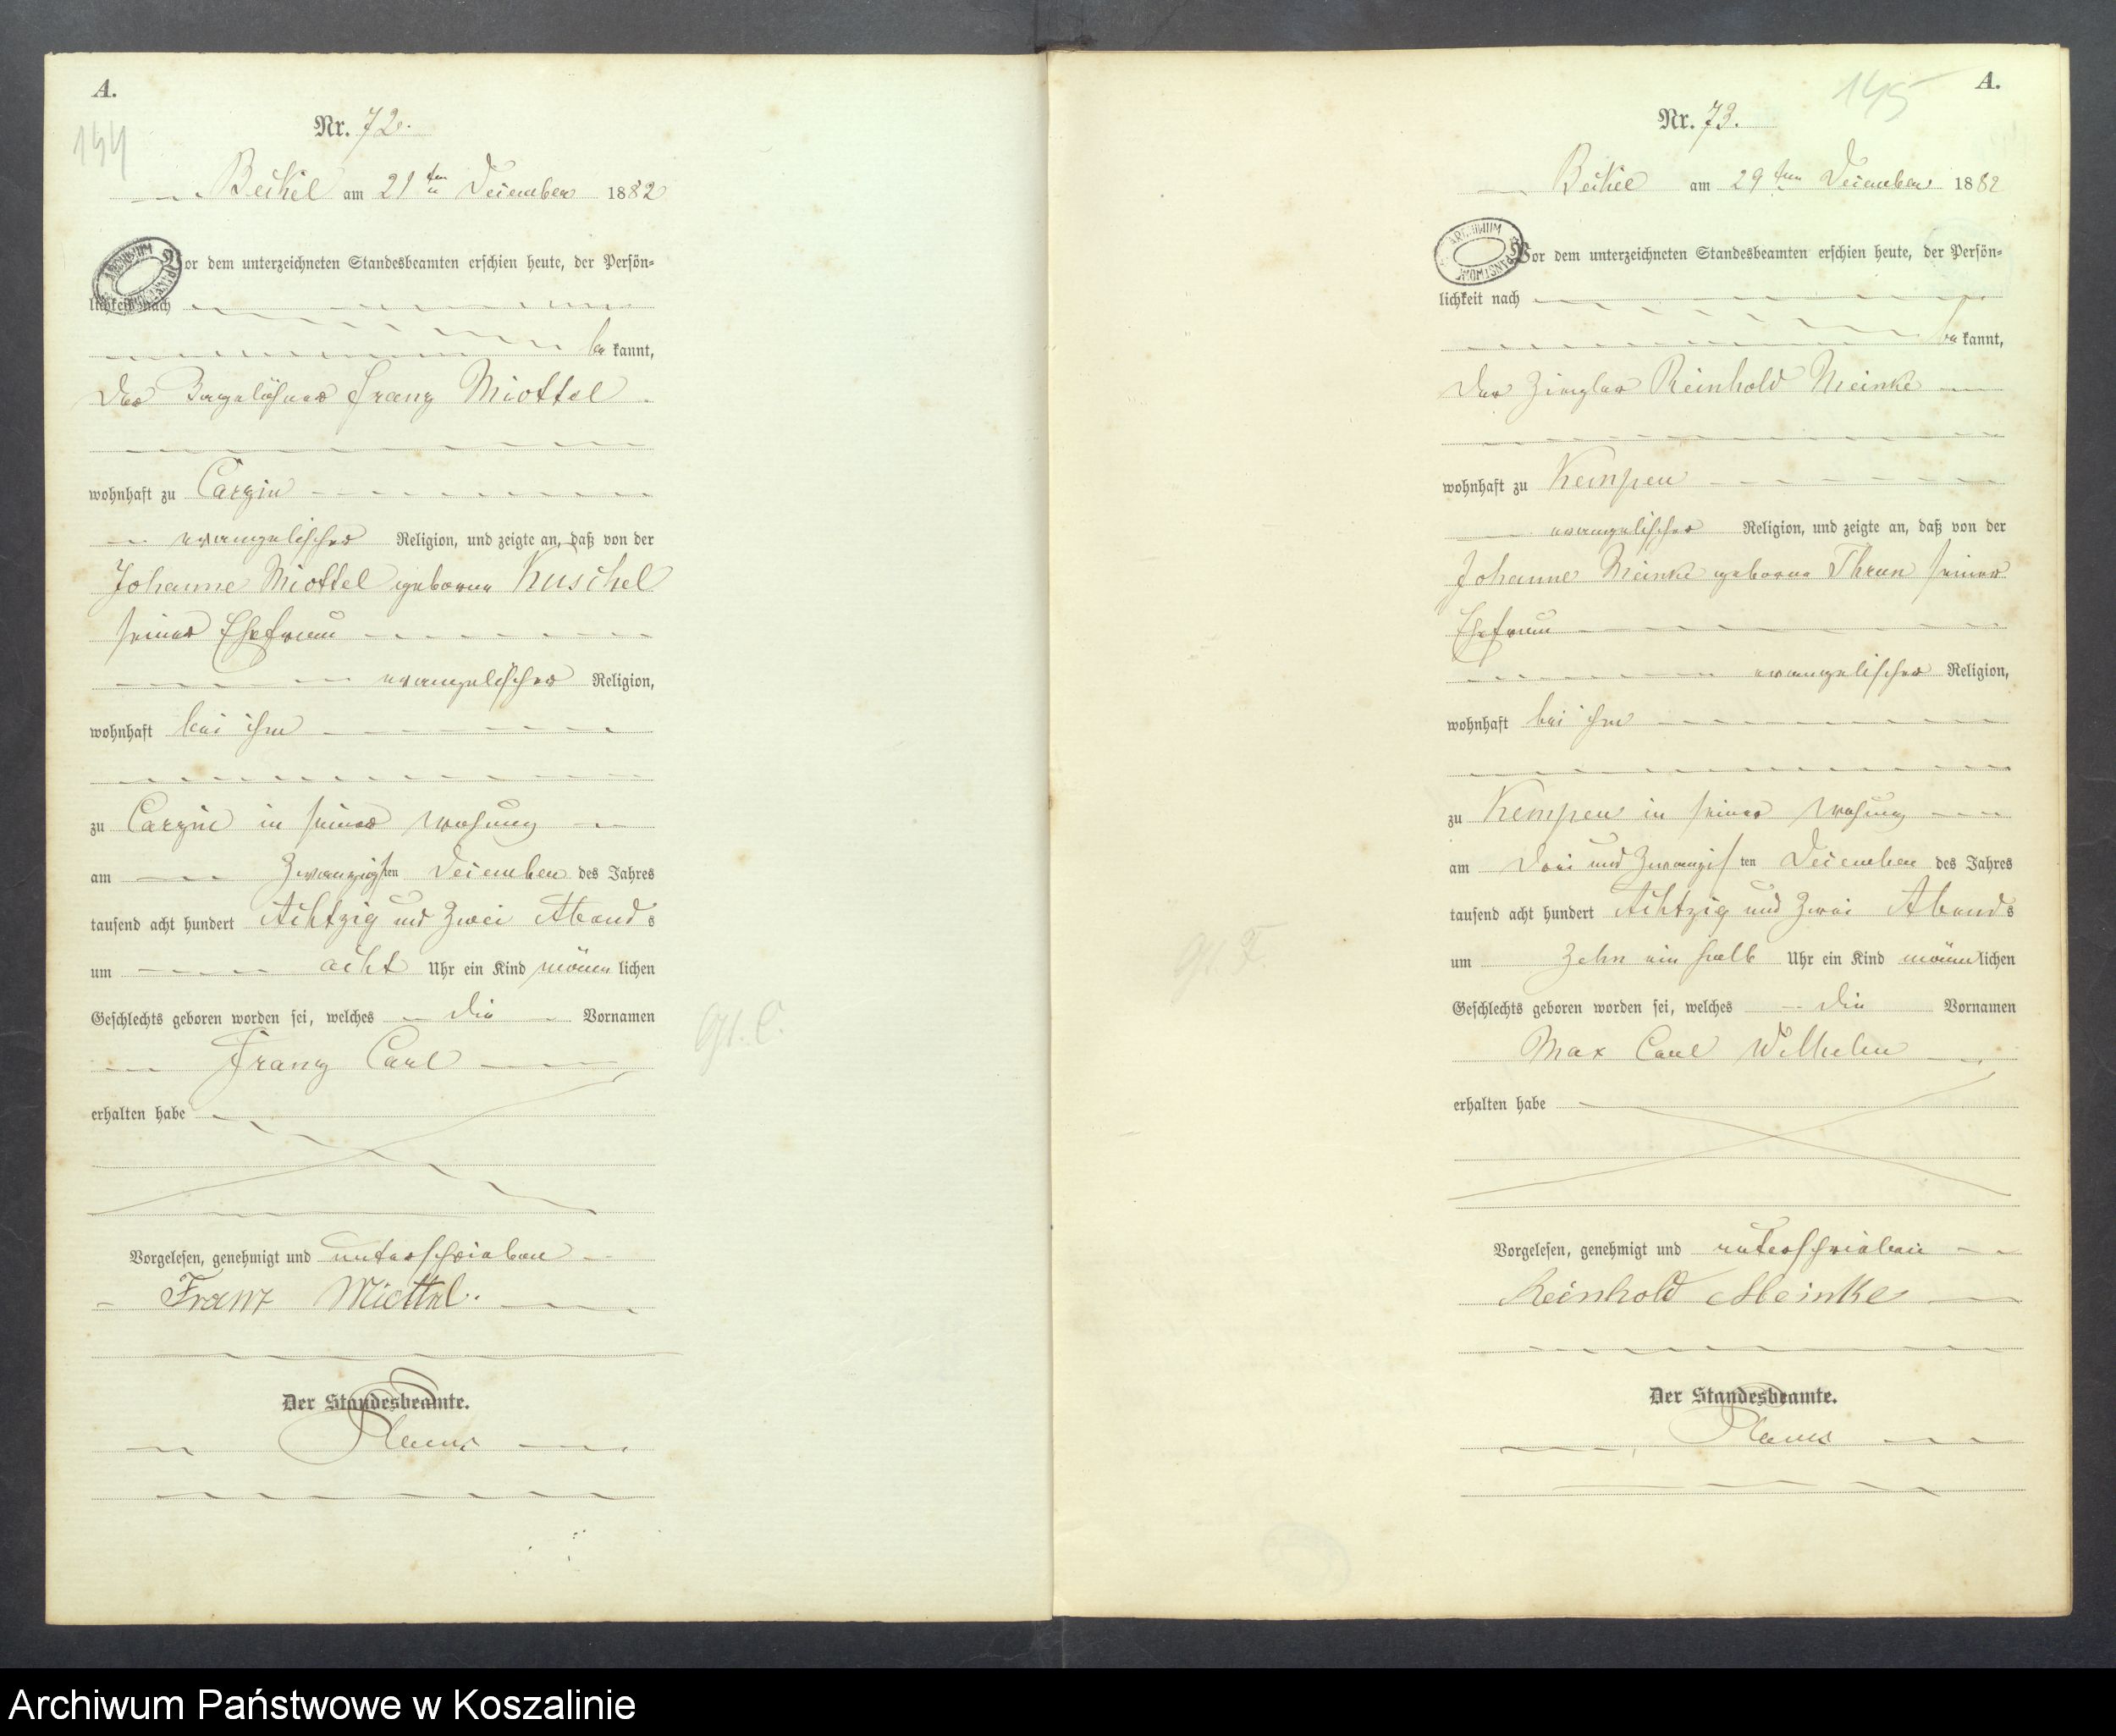 A.
144
Nr. 72.
Beckel am 21ten December 1882
Vor dem unterzeichneten Standesbeamten erschien heute, der Persön-
lichkeit nach
be kannt,
der Tagelöhner Franz Miottel
wohnhaft zu Carzin
evangelischer Religion, und zeigte an, daß von der
Johanne Miottel geborne Kuschel
seiner Ehefrau
evangelischer Religion,
wohnhaft bei ihm
zu Carzin in seiner Wohnung
am Zwanzigsten December des Jahres
tausend acht hundert Achtzig und Zwei Abends
um acht Uhr ein Kind männ lichen
Geschlechts geboren worden sei, welches die Vornamen
Franz Carl
erhalten habe
Vorgelesen, genehmigt und unterschrieben
Franz Miottel.
Der Standesbeamte.
A.
145
Nr. 73.
Beckel am 29ten December 1882
Vor dem unterzeichneten Standesbeamten erschien heute, der Persön-
lichkeit nach
be kannt,
der Ziegler Reinhold Meinke
wohnhaft zu Kempen
evangelischer Religion, und zeigte an, daß von der
Johanne Meinke geborne Thrun seiner
Ehefrau
evangelischer Religion,
wohnhaft bei ihm
zu Kempen in seiner Wohnung
am Drei und Zwanzigsten December des Jahres
tausend acht hundert Achtzig und Zwei Abends
um Zehn ein halb Uhr ein Kind männlichen
Geschlechts geboren worden sei, welches die Vornamen
Max Carl Wilhelm
erhalten habe
Vorgelesen, genehmigt und unterschrieben
Reinhold Meinke
Der Standesbeamte.
Archiwum Państwowe w Koszalinie